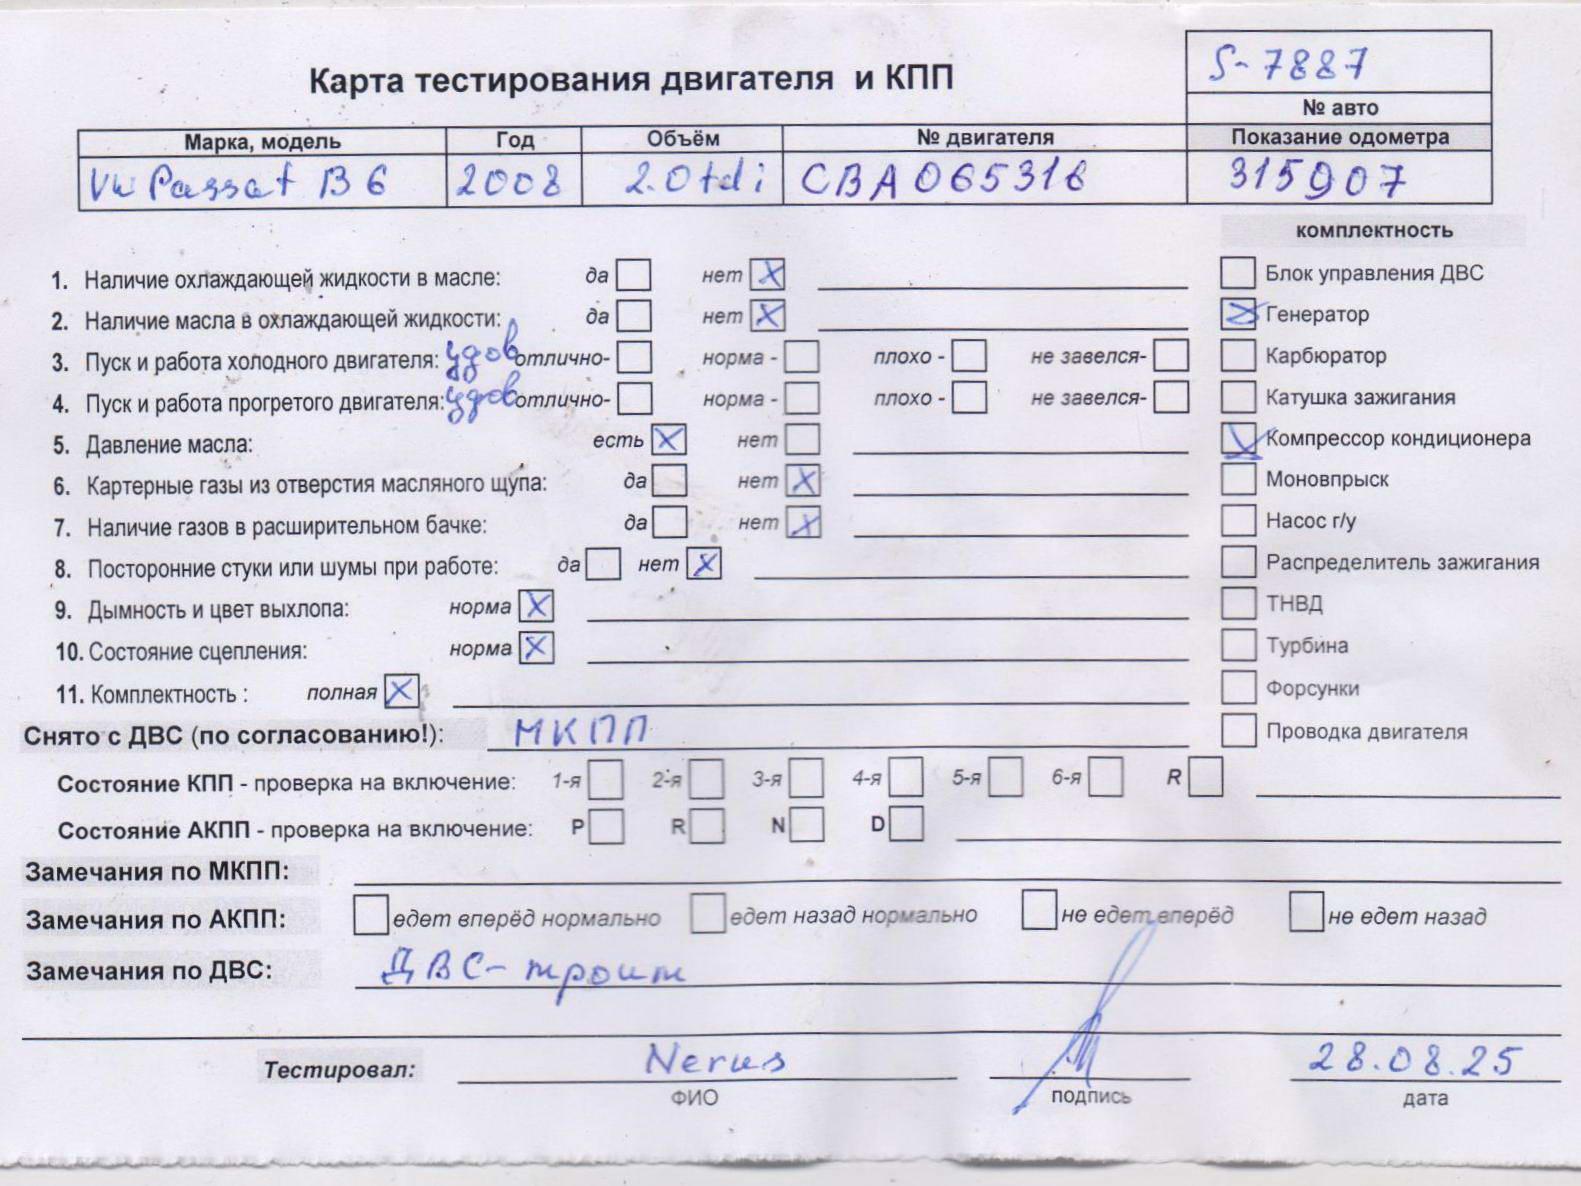 S-7887
Карта тестирования двигателя и КПП
№ авто
Марка, модель Год Объём № двигателя Показание одометра
VW Passat B6 2008 2.0 tdi CBA 065316 315907
комплектность
1. Наличие охлаждающей жидкости в масле: да нет X Блок управления ДВС
2. Наличие масла в охлаждающей жидкости: да нет X Генератор
3. Пуск и работа холодного двигателя: удов отлично- норма - плохо - не завелся- Карбюратор
4. Пуск и работа прогретого двигателя: удов отлично- норма - плохо - не завелся- Катушка зажигания
5. Давление масла: есть X нет Компрессор кондиционера
6. Картерные газы из отверстия масляного щупа: да нет X Моновпрыск
7. Наличие газов в расширительном бачке: да нет X Насос г/у
8. Посторонние стуки или шумы при работе: да нет X Распределитель зажигания
9. Дымность и цвет выхлопа: норма X ТНВД
10. Состояние сцепления: норма X Турбина
11. Комплектность : полная X Форсунки
Снято с ДВС (по согласованию!): МКПП Проводка двигателя
Состояние КПП - проверка на включение: 1-я 2-я 3-я 4-я 5-я 6-я R
Состояние АКПП - проверка на включение: P R N D
Замечания по МКПП:
Замечания по АКПП: едет вперёд нормально едет назад нормально не едет вперёд не едет назад
Замечания по ДВС: ДВС - троит
Тестировал: Nerus 28.08.25
ФИО подпись дата